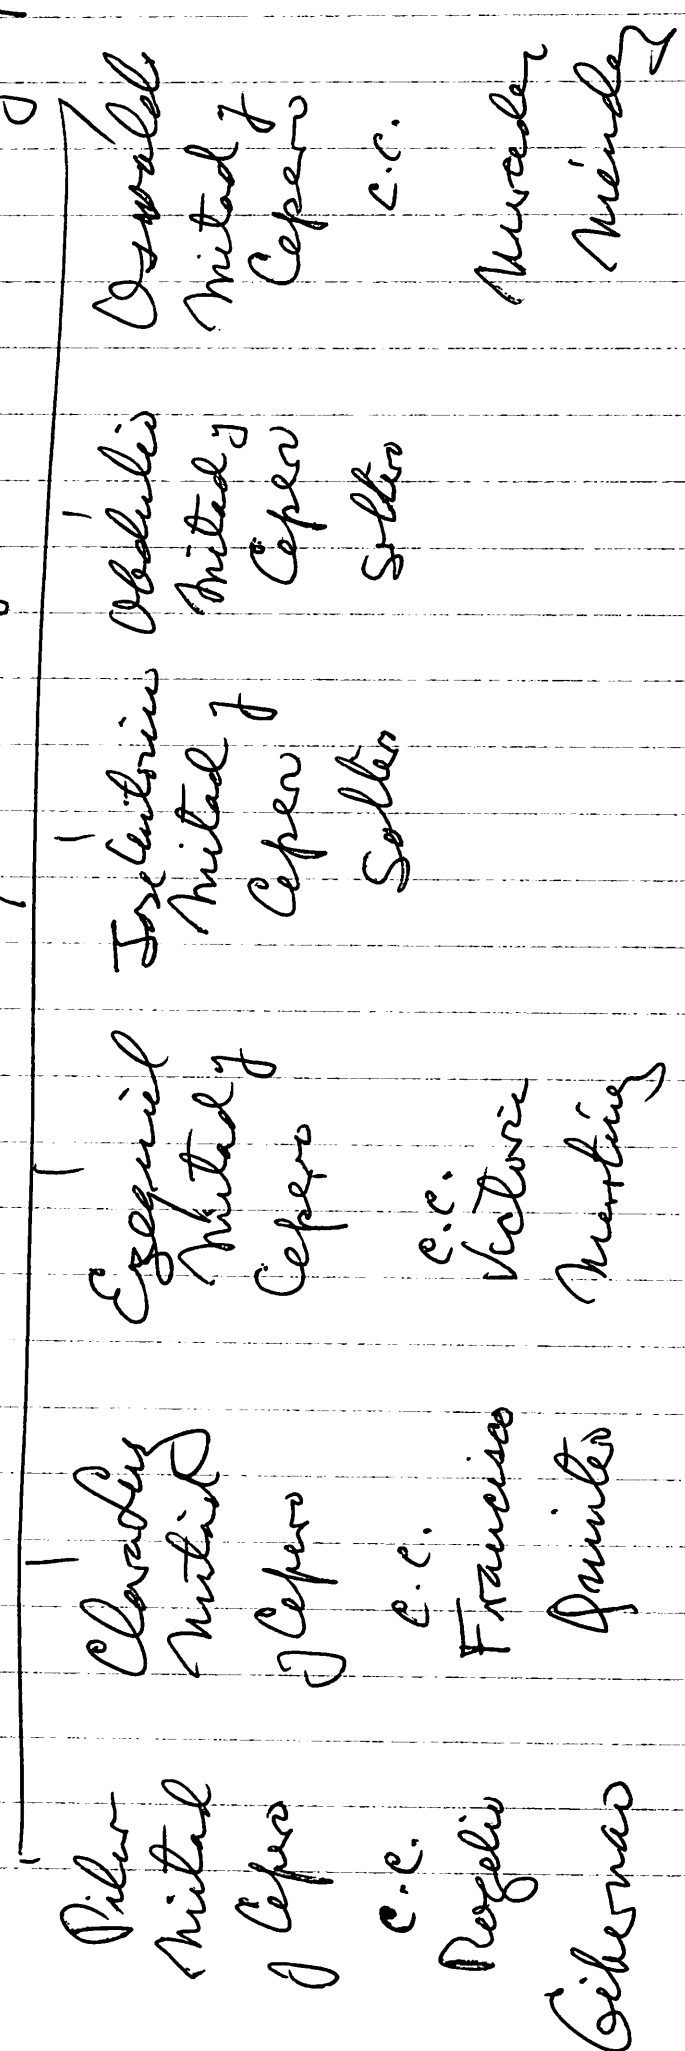 Pilar
Mitad
y Cepero
C.C.
Rogelio
Gibernao
Mitad
y Cepero
C.C.
Francisco
Quintero
Ezequiel
Mitad y
Cepero
C.C.
Victoria
Martínez
José Antonio
Mitad y
Cepero
Soltero
Obdulio
Mitad y
Cepero
Soltero
Oswaldo
Mitad y
Cepero
C.C.
Mercedes
Méndez